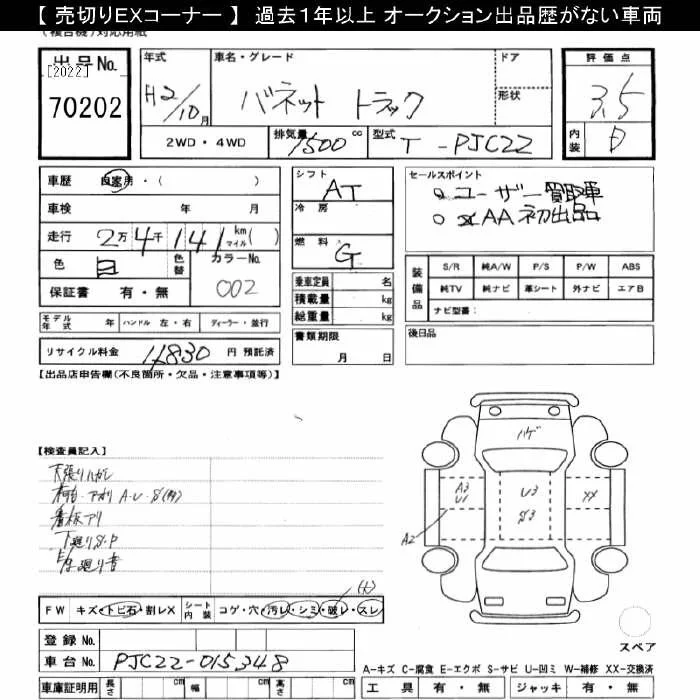 【 売切りEXコーナー 】 過去1年以上 オークション出品歴がない車両
(複合機)対応用紙
出品No.
[2022]
70202
年式
H2/10月
車名・グレード
バネット トラック
ドア
形状
評価点
3.5
内装
D
2WD・4WD
排気量 1500 cc
型式 T-PJC22
車歴 自家用・( )
車検 年 月
走行 2万4千141 km マイル( )
色 白
色替
カラーNo. 002
保証書 有・無
シフト AT
冷房
燃料 G
乗車定員 名
積載量 kg
総重量 kg
書類期限
月 日
セールスポイント
○ ユーザー買取車
○ AA初出品
装備品
S/R 純A/W P/S P/W ABS
純TV 純ナビ 革シート 外ナビ エアB
ナビ型番:
後日品
モデル年式 年 ハンドル 左・右 ディーラー・並行
リサイクル料金 14830 円 預託済
【出品店申告欄(不良個所・欠品・注意事項等)】
【検査員記入】
天張りハガレ
荷台・アオリ A・U・S(内)
看板アリ
下廻りS・P
E/G廻り音
ハゲ
A3
U1
U3
S3
XX
A2
(大)
FW キズ・トビ石・割レX シート内装 コゲ・穴・汚レ・シミ・破レ・スレ
登録No.
車台No. PJC22-015348
車庫証明用 長さ cm 幅 cm 高さ cm
スペア
A-キズ C-腐食 E-エクボ S-サビ U-凹ミ W-補修 XX-交換済
工具 有・無 ジャッキ 有・無